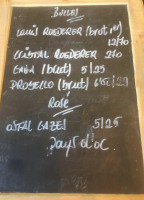 BULLES
LOUIS ROEDERER (brut)
12/70
CRISTAL ROEDERER 270
CAVA (brut) 5/25
PROSECCO (brut) 6,50/29
Rosé
OSTAL CAZES 5/25
Pays d'oc